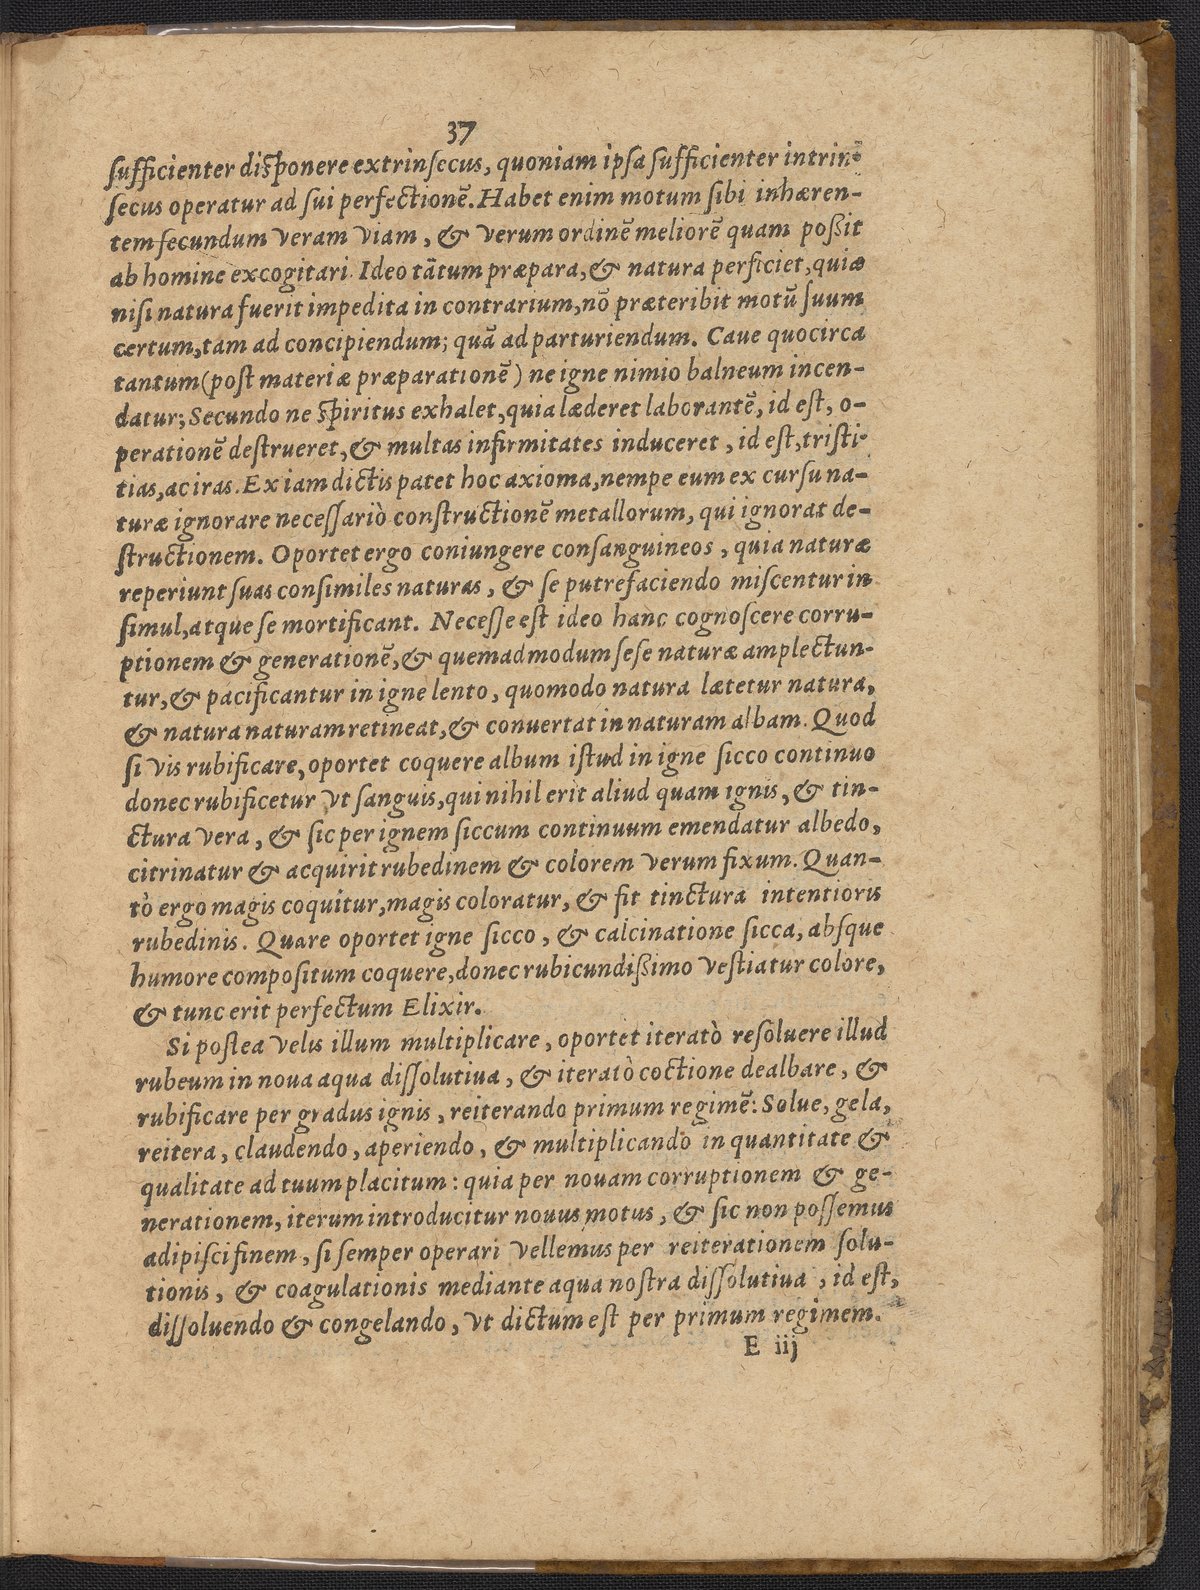 37
ſufficienter diſponere extrinſecus, quoniam ipſa ſufficienter intrin-
ſecus operatur ad ſui perfectionē. Habet enim motum ſibi inhæren-
tem ſecundum veram viam, & verum ordinē meliorē quam poßit
ab homine excogitari. Ideo tātum præpara, & natura perficiet, quia
niſi natura fuerit impedita in contrarium, nō præteribit motū ſuum
certum, tam ad concipiendum; quā ad parturiendum. Caue quocirca
tantum (poſt materiæ præparationē) ne igne nimio balneum incen-
datur; Secundo ne ſpiritus exhalet, quia læderet laborantē, id eſt, o-
perationē deſtrueret, & multas infirmitates induceret, id eſt, triſti-
tias, ac iras. Ex iam dictis patet hoc axioma, nempe eum ex curſu na-
turæ ignorare neceſſariò conſtructionē metallorum, qui ignorat de-
ſtructionem. Oportet ergo coniungere conſanguineos, quia naturæ
reperiunt ſuas conſimiles naturas, & ſe putrefaciendo miſcentur in
ſimul, atque ſe mortificant. Neceſſe eſt ideo hanc cognoſcere corru-
ptionem & generationē, & quemadmodum ſeſe naturæ amplectun-
tur, & pacificantur in igne lento, quomodo natura lætetur natura,
& natura naturam retineat, & conuertat in naturam albam. Quod
ſi vis rubificare, oportet coquere album iſtud in igne ſicco continuo
donec rubificetur vt ſanguis, qui nihil erit aliud quam ignis, & tin-
ctura vera, & ſic per ignem ſiccum continuum emendatur albedo,
citrinatur & acquirit rubedinem & colorem verum fixum. Quan-
tò ergo magis coquitur, magis coloratur, & fit tinctura intentioris
rubedinis. Quare oportet igne ſicco, & calcinatione ſicca, abſque
humore compoſitum coquere, donec rubicundißimo veſtiatur colore,
& tunc erit perfectum Elixir.
Si poſtea velis illum multiplicare, oportet iteratò reſoluere illud
rubeum in noua aqua diſſolutiua, & iteratò coctione dealbare, &
rubificare per gradus ignis, reiterando primum regimē: Solue, gela,
reitera, claudendo, aperiendo, & multiplicando in quantitate &
qualitate ad tuum placitum: quia per nouam corruptionem & ge-
nerationem, iterum introducitur nouus motus, & ſic non poſſemus
adipiſci finem, ſi ſemper operari vellemus per reiterationem ſolu-
tionis, & coagulationis mediante aqua noſtra diſſolutiua, id eſt,
diſſoluendo & congelando, vt dictum eſt per primum regimem.
E iij